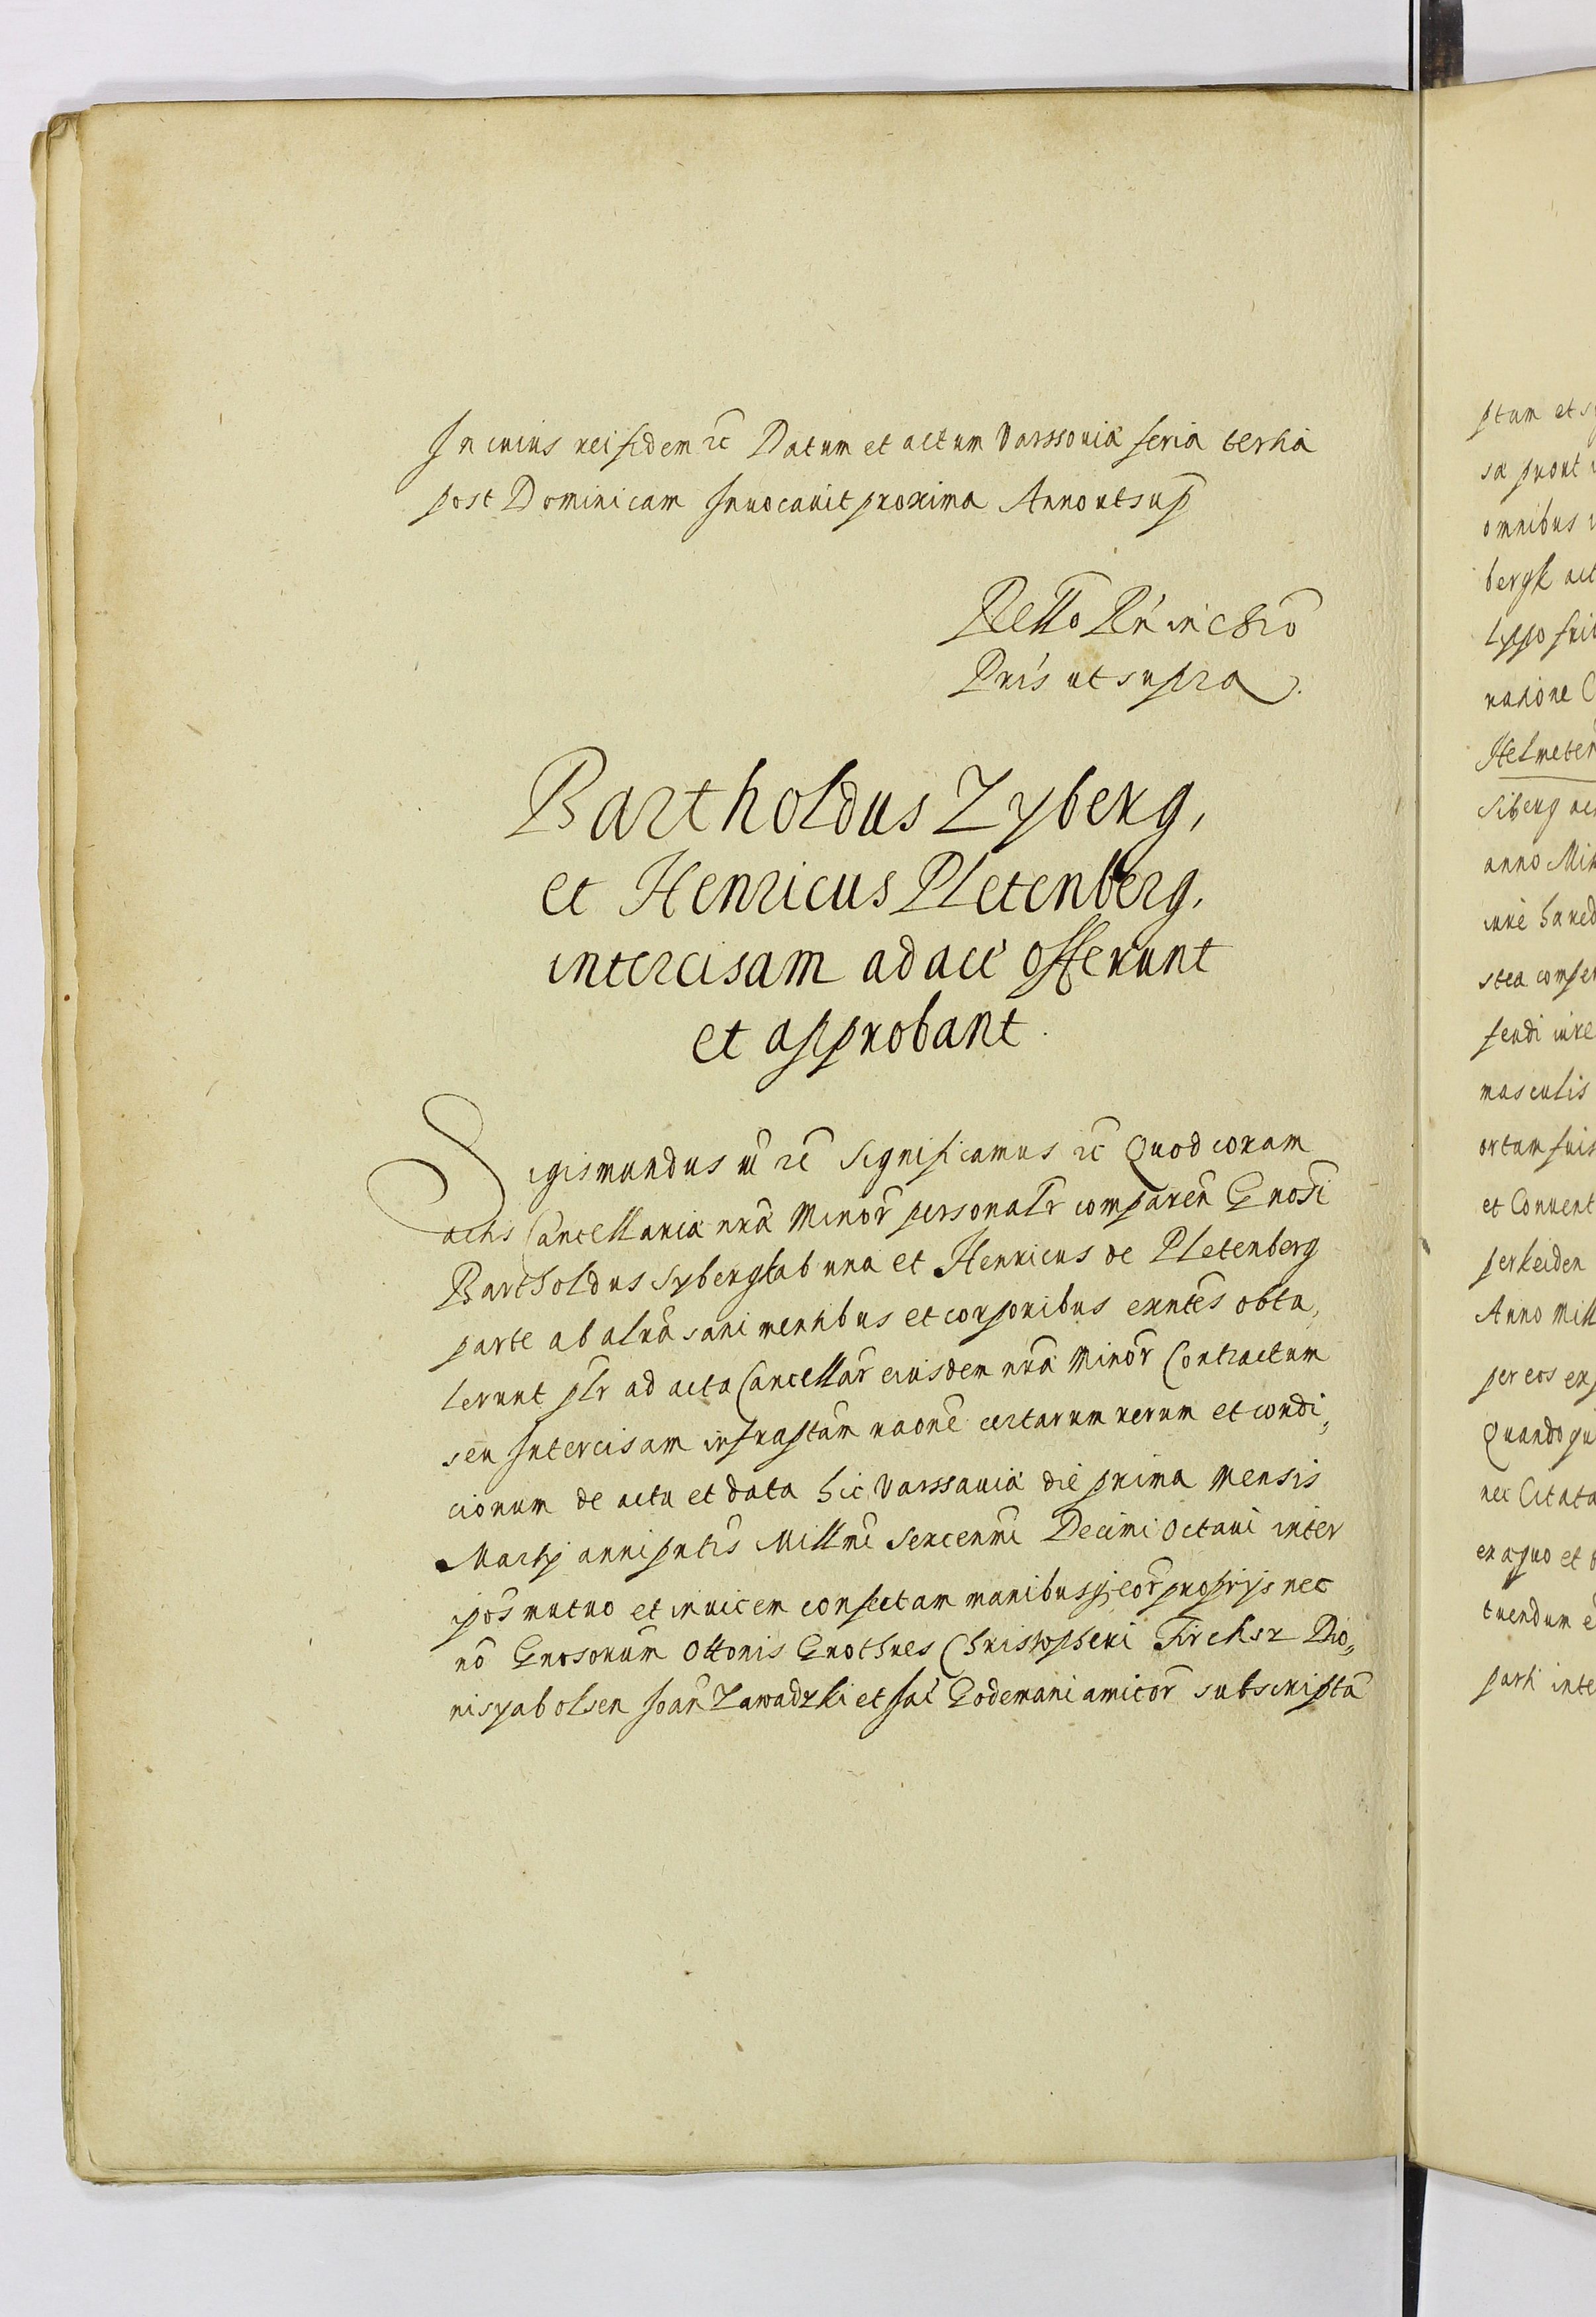 In cuius rei fidem ꝛc̃ Datum et actum Varssouiæ feria tertia
post Dominicam Inuocauit proxima Anno ut sup̃
Rell̃o
Pris ut supra.
Bartholdus Zyberg,
et Henricus Pletenberg,
intercisam ad acĕ offerunt
et approbant.
Sigismundus ꝛc̃ Significamus ꝛc̃ Quod coram
actis Cancellariæ nr̃æ Minor̃ personalr̃ comparen̄ Gnosĩ
Bartholdus Sybergk ab una et Henricus de Pletenberg
parte ab altrã sani mentibus et corporibus exnt̃es obtu,
lerunt plr̃ ad acta Cancellar̃ eiusdem nr̃æ Minor̃ Contractum
seu Intercisam infrapt̃am raõne certarum rerum et condi,
cionum de actu et data hic Varssauiæ die prima Mensis
Martij anni pnt̃is Mill̃mi Sexcenm̃i Decimi Octaui inter
ip̃os mutuo et inuicem confectam manibusq; eor̃ proprijs nec
nõ Gnosorum̃ Ottonis Grothues Christopheri Firchsz Dio,,
nis Joan̄ Zawadzki et Godemani amicor̃ subscriptã
ptam et
sa prout
omnibus
bergk
Lyppo
ratione
Helmeten
Siberg
anno
iure hæred
stea
feudi iure
masculis
ortam fuis
et Conuent
perkeiden
Anno Mill
per eos
Quandoqu
nec Citata
ex quo et
tuendum
parti inte